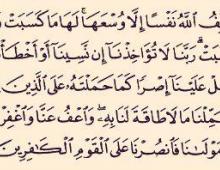 ـفُ ٱللَّهُ نَفۡسًا إِلَّا وُسۡعَهَاۚ لَهَا مَا كَسَبَتۡ
ـبَتۡۗ رَبَّنَا لَا تُؤَاخِذۡنَآ إِن نَّسِينَآ أَوۡ أَخۡطَأۡ
ـلۡ عَلَيۡنَآ إِصۡرٗا كَمَا حَمَلۡتَهُۥ عَلَى ٱلَّذِينَ
ـمِّلۡنَا مَا لَا طَاقَةَ لَنَا بِهِۦۖ وَٱعۡفُ عَنَّا وَٱغۡفِرۡ
ـوۡلَىٰنَا فَٱنصُرۡنَا عَلَى ٱلۡقَوۡمِ ٱلۡكَٰفِرِينَ